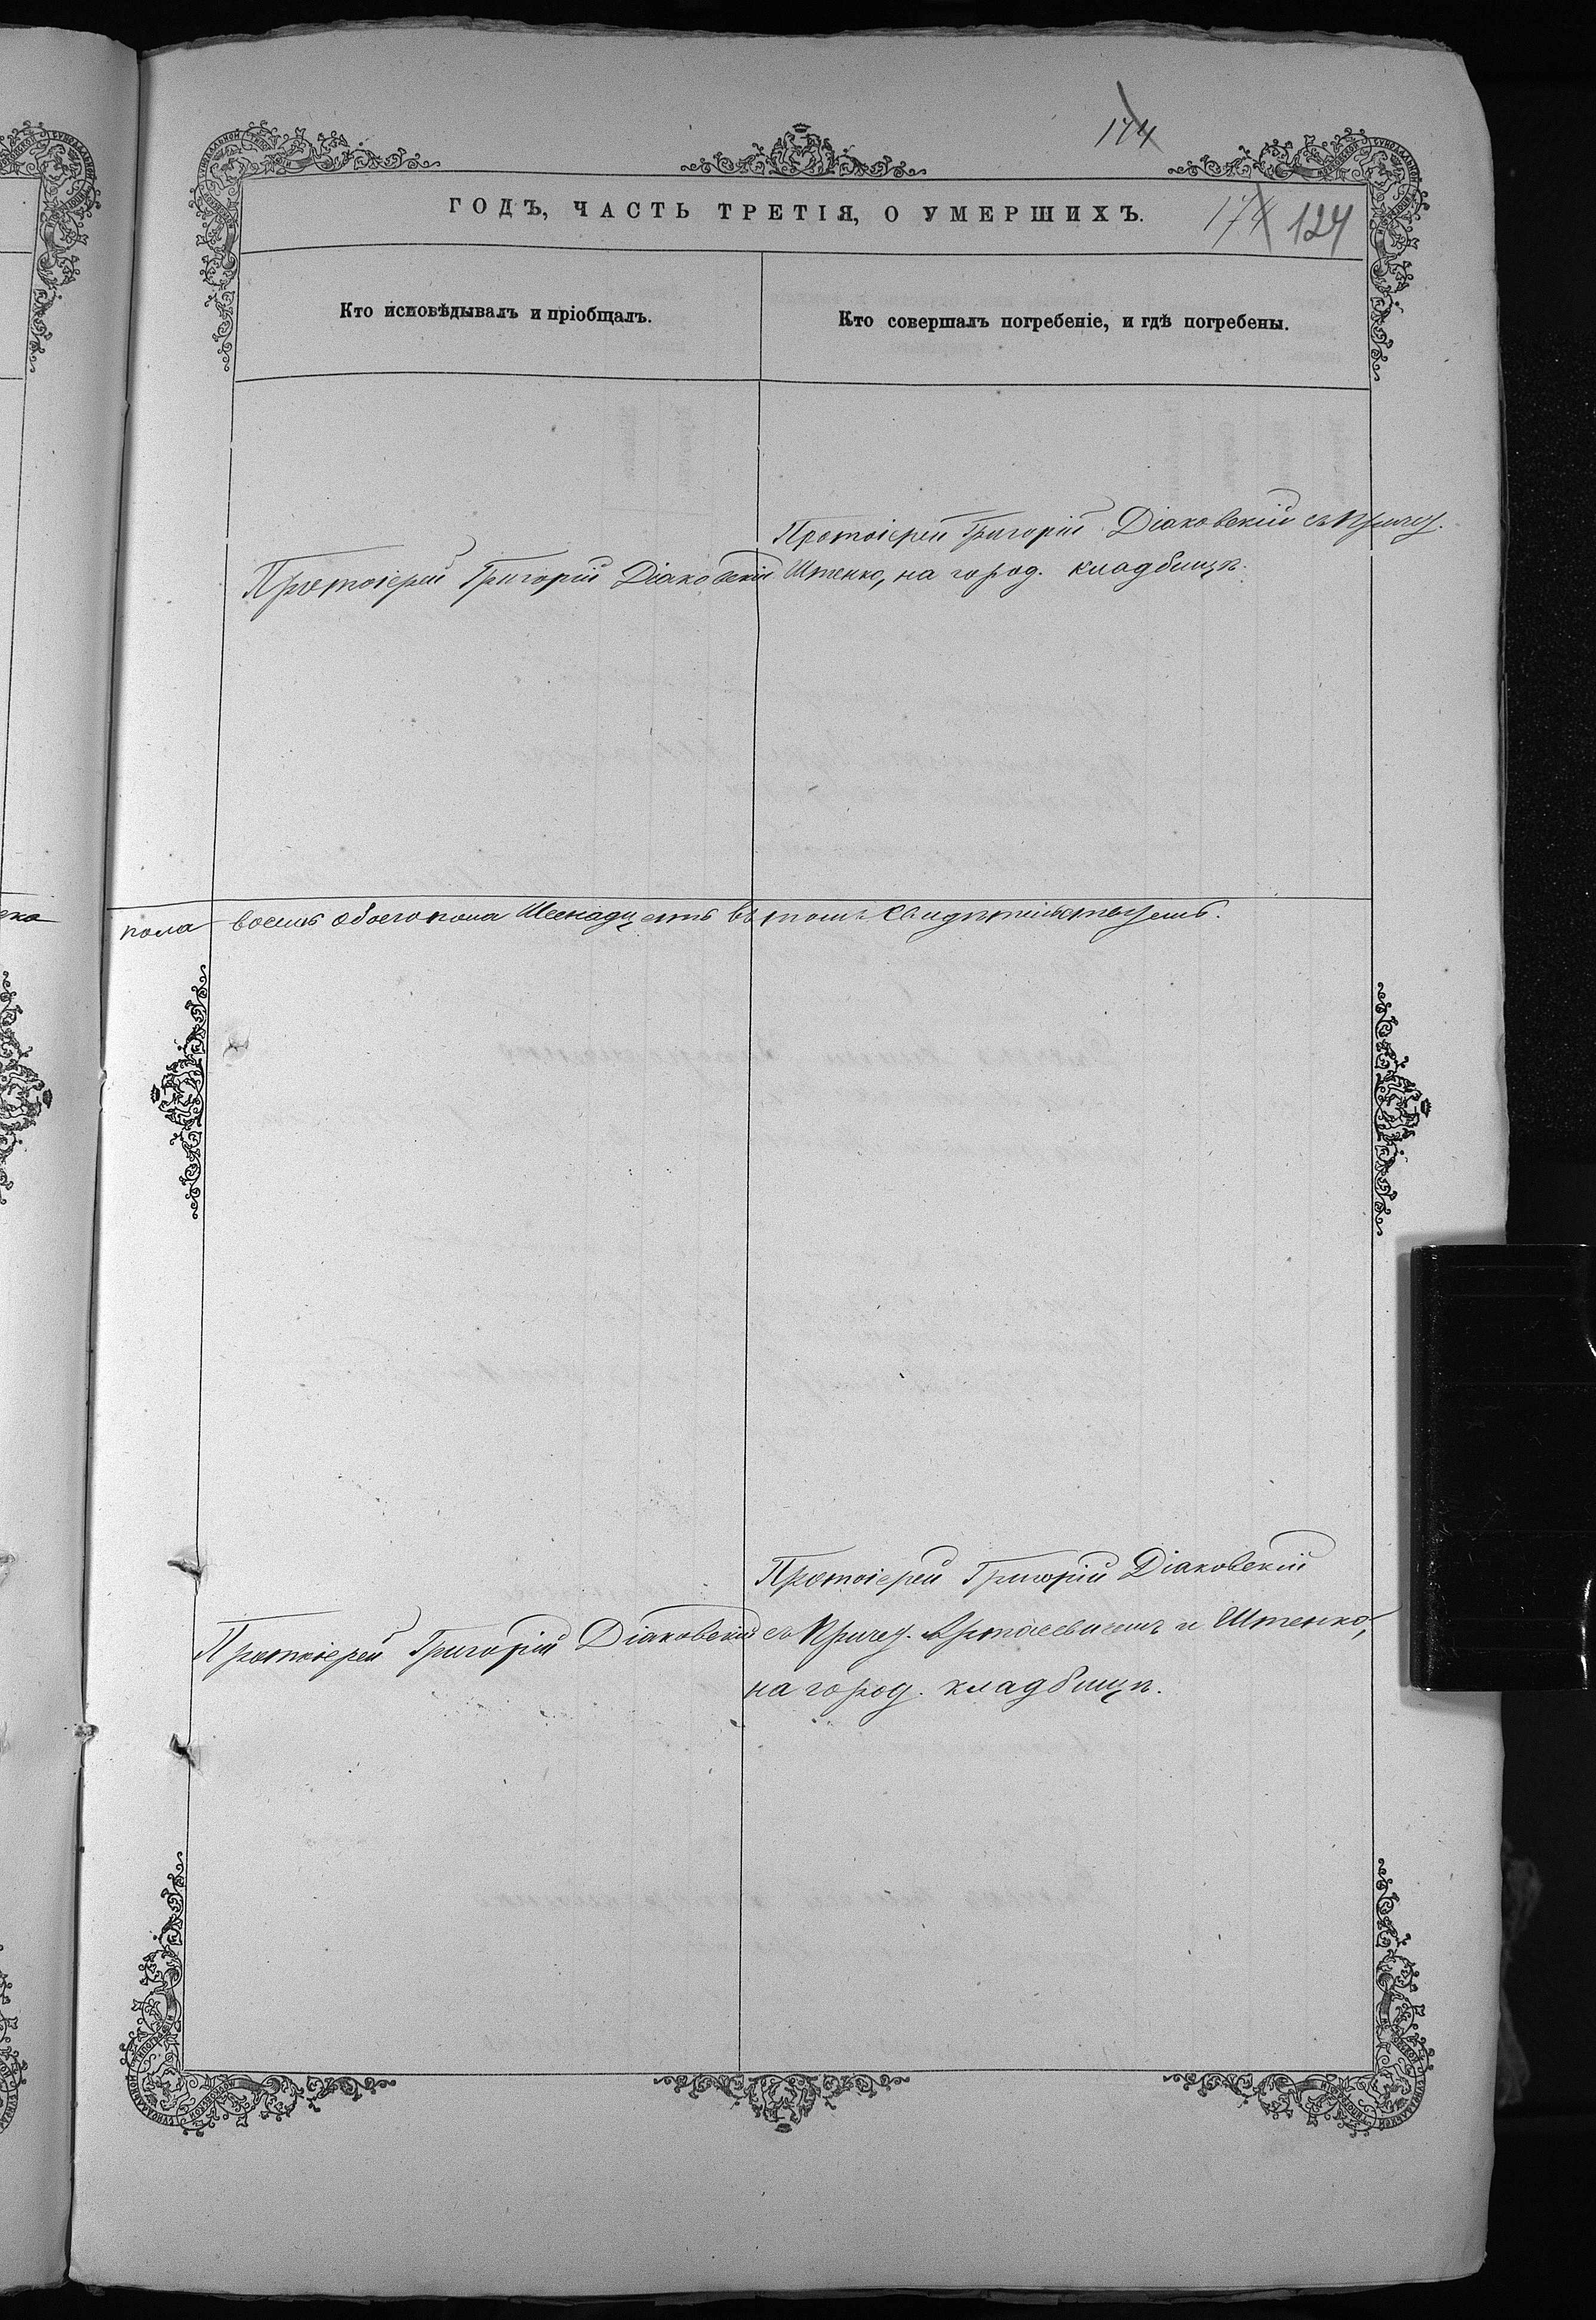 174
ГОДЪ, ЧАСТЬ ТРЕТІЯ, О УМЕРШИХЪ.
174 124
Кто исповѣдывалъ и пріобщалъ.
Кто совершалъ погребеніе, и гдѣ погребены.
Протоіерей Григорій Діаковскій
Протоіерей Григорій Діаковскій съ Причет.
Штенко, на город. кладбищѣ.
пола восемь обоего пола Шеснадцать въ томъ Свидѣтельствуемъ.
Протоіерей Григорій Діаковскій
Протоіерей Григорій Діаковскій
съ Причет. и Штенко,
на город. кладбищѣ.